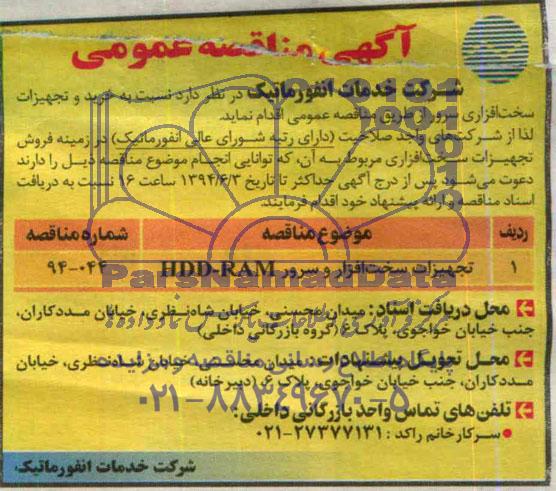 آگهی مناقصه عمومی
شرکت خدمات انفورماتیک در نظر دارد نسبت به خرید و تجهیزات
سخت‌افزاری سرور از طریق مناقصه عمومی اقدام نماید.
لذا از شرکت‌های واجد صلاحیت (دارای رتبه شورای عالی انفورماتیک) در زمینه فروش
تجهیزات سخت‌افزاری مربوط به آن، که توانایی انجام موضوع مناقصه ذیل را دارند
دعوت می‌شود پس از درج آگهی حداکثر تا تاریخ ۱۳۹۴/۶/۳ ساعت ۱۶ نسبت به دریافت
اسناد مناقصه و ارائه پیشنهاد خود اقدام فرمایند.
ردیف موضوع مناقصه شماره مناقصه
۱ تجهیزات سخت‌افزار و سرور HDD-RAM ۹۴-۰۴۴
ParsNamadData
محل دریافت اسناد: میدان محسنی، خیابان شاه‌نظری، خیابان مددکاران،
جنب خیابان خواجوی، پلاک ۶ (گروه بازرگانی داخلی)
محل تحویل پیشنهادات: میدان محسنی، خیابان شاه‌نظری، خیابان
مددکاران، جنب خیابان خواجوی، پلاک ۶، (دبیرخانه)
پایگاه اطلاع رسانی مناقصه و مزایده
۰۲۱-۸۸۳۴۹۶۷۰-۵
تلفن‌های تماس واحد بازرگانی داخلی:
سرکار خانم راکد : ۲۷۳۷۷۱۳۱-۰۲۱
شرکت خدمات انفورماتیک